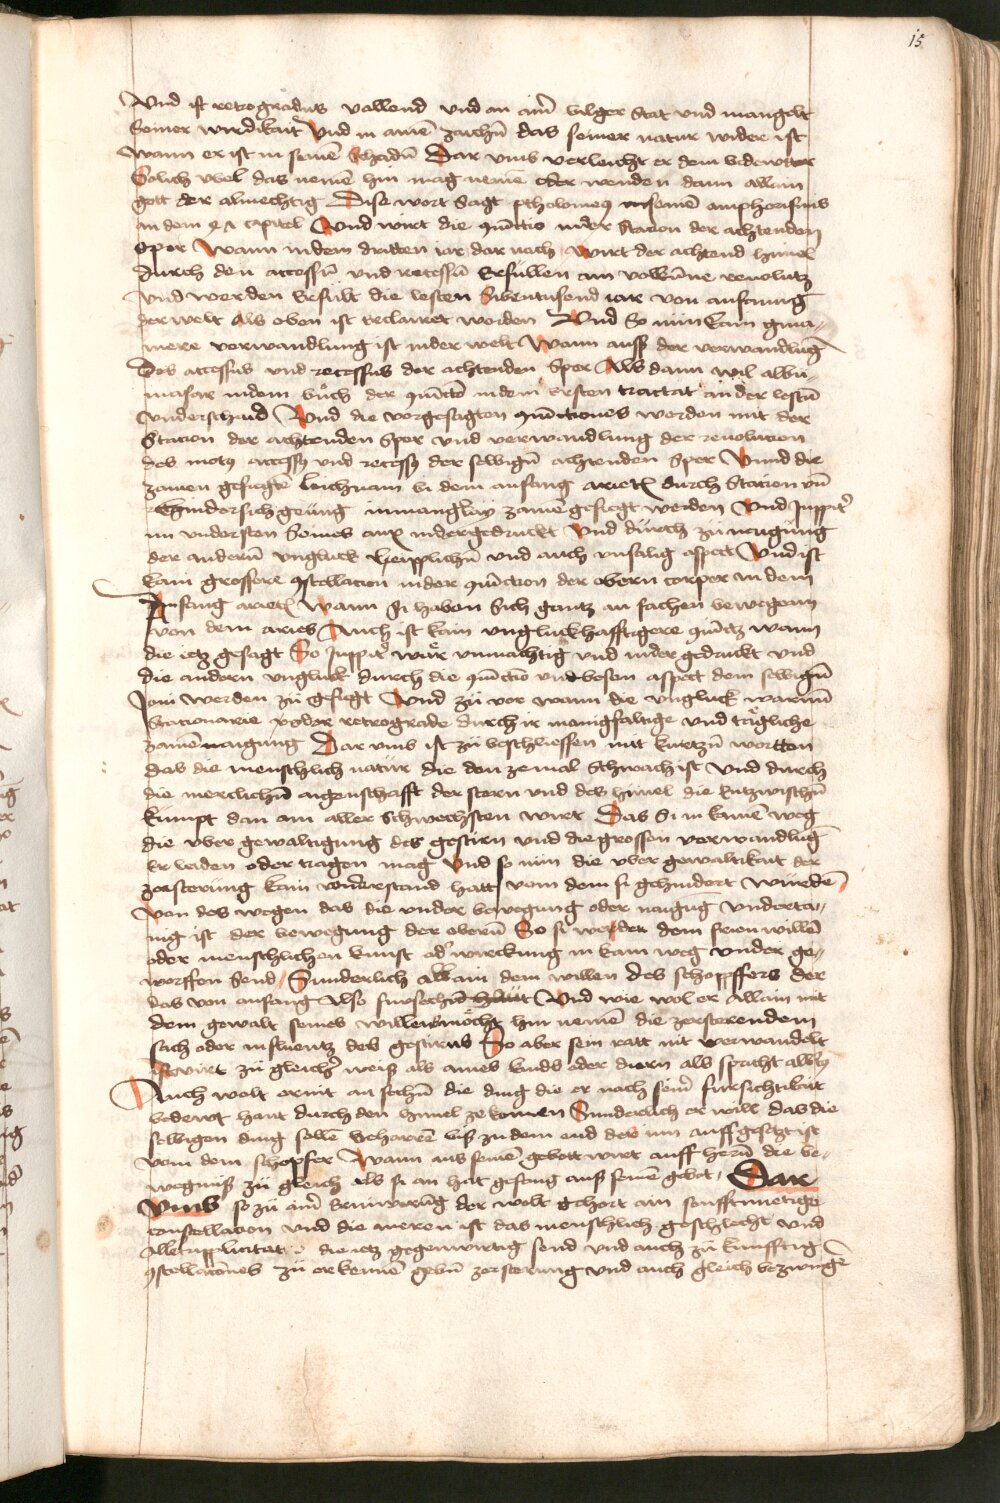 15
Und ist retrogradus vallend und an aim̄ bilger stat und mangelt
Seiner wirdikait Und in ainē zaichn̄ das seiner natur wider ist
Wann er ist in seinē schadn̄ Dar umb verleicht er dem bedewter
Solich vbel das nemē hin mag nemē oder wenden dann allain
gott der almechtig Dise wort sagt ptholomeꝯ in seinē amphorismis
an dem capitel Und wirt die ꝯiūctio in der stacion der achtenden
sper Wann in dem dritten iar dar nach wirt der achtend himel
durch den accessū und recessū erfüllen ain volkōme revolutz
und werden erfult die lesten sibentusend iar von anfanng
der welt als oben ist declariret worden Und so nün kain gma⸗
inere verwandlung ist in der welt Wann auß der verwandlūg
Des accessus und recessus der achtenden sper Als dann wil albu⸗
masar in dem büch der ꝯiūctō in dem ersten tractat an der lestn̄
underschid Und die vorgesagten ꝯiūctiones werden mit der
stacion der achtenden sper und verwandlung der revolucion
des motꝯ accessꝯ und recessꝯ der selbign̄ achtenden sper Unnd die
zamen gefugte leichnam bi dem anfang arietꝭ durch stacion un̄
hindersich geung zamē gefuegt werden Und Juppitꝰ
im understen seines aux nidergedruckt Und durch zu naigung
der andern̄ ungluck und auch unsälig aspect Und ist
kain grossere ꝯstellacion in der ꝯiūction der obern corper in dem
Anfang arietꝭ Wann si haben sich gantz an sachen bewegenn
von dem aries Auch ist kain ungluckhafftigere ꝯiūctz wann
die ietz gesagt So Juppitꝰ wår unmåchtig und nider gedruckt und
die andern ungluck durch die ꝯiūctio und bosen aspect dem selbign̄
Jovi werden zu gefuegt Und zu vor wann die ungluck warnn̄
Stationarie vel retrograde durch ir manigfaltige und tågliche
zamē naigung Dar umb ist zu beschliessen mit kurtzn̄ wortten
das die menschlich natur die den zemal schwach ist Und durch
die merclichn̄ aigenschafft der stern und des himel die
kumpt dan am aller schwechsten wirt Das si in kainē weg
die uber gewaltigung des gestirn und die grossen verwandlūg
er leiden oder tragen mag Und so nün die uber gewaltikait der
zersterung kain widerstand hatt vom dem si gehindert würdē
Von des wegen das die under bewegung oder naigūg underta⸗
nig ist der bewegung der obern̄ So si werden dem freien willē
oder menschlichen kunst odꝰ wirckung in kain weg under ge⸗
worffen send Sunderlich allain dem willen des schopffers der
das von anfang also fursechn̄ hat Und wie wol er allain mit
dem gewalt seines willen mochtt hin nemē die zersterendem
sach oder influentz des gestirns So aber sein ratt nit verwandelt
wirt zu gleichꝰ weiß als aines kinds oder diern als spricht albtꝯ
Auch wolt er nit an sechn̄ die ding die er nach seinꝰ fursichtikait
bedewt hatt durch den himel ze komen Sunderlich er will das die
selbigen ding sölle beharrē biß zu dem end das im auff gesetzt ist
vom dem schopfer Wann aus seinē gebott wirt auff hörn̄ die be⸗
wegniß zu gleich als si an hat gefang auß seinē gebot Dar
umb so zu aim̄ erniwerūg der welt gehort ain senfftmuetige
constellacion und die meren ist das menschlich geschlecht und
alle die ietz gegenwirtig send und auch zu kunfftig
ꝯstellacōnes zu erkennē gebn̄ zersterung und auch gleich bezwingē